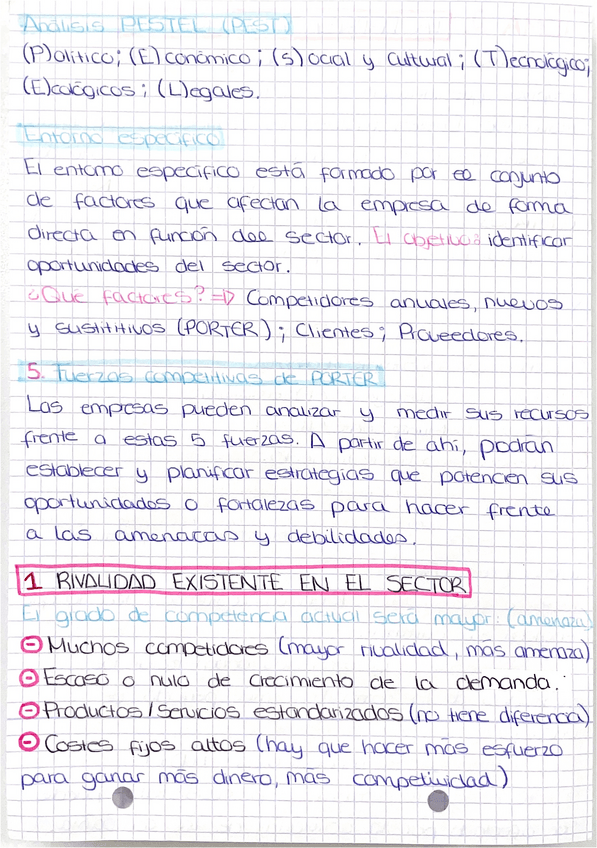 Análisis PESTEL (PEST)
(P)olítico; (E)conómico; (S)ocial y cultural; (T)ecnológico;
(E)cológicos; (L)egales.
Entorno específico
El entorno específico está formado por el conjunto
de factores que afectan la empresa de forma
directa en función del sector. El objetivo: identificar
oportunidades del sector.
¿Que factores? => Competidores anuales, nuevos
y sustititivos (PORTER); Clientes; Proveedores.
5. Fuerzas competitivas de PORTER
Las empresas pueden analizar y medir sus recursos
frente a estas 5 fuerzas. A partir de ahí, podrán
establecer y planificar estrategias que potencien sus
oportunidades o fortalezas para hacer frente
a las amenacas y debilidades.
1 RIVALIDAD EXISTENTE EN EL SECTOR
El grado de competencia actual será mayor: (amenaza)
⊖ Muchos competidores (mayor rivalidad, más amenaza)
⊖ Escaso o nulo de crecimiento de la demanda.
⊖ Productos/Servicios estandarizados (no tiene diferencia)
⊖ Costes fijos altos (hay que hacer más esfuerzo
para ganar más dinero, más competividad)